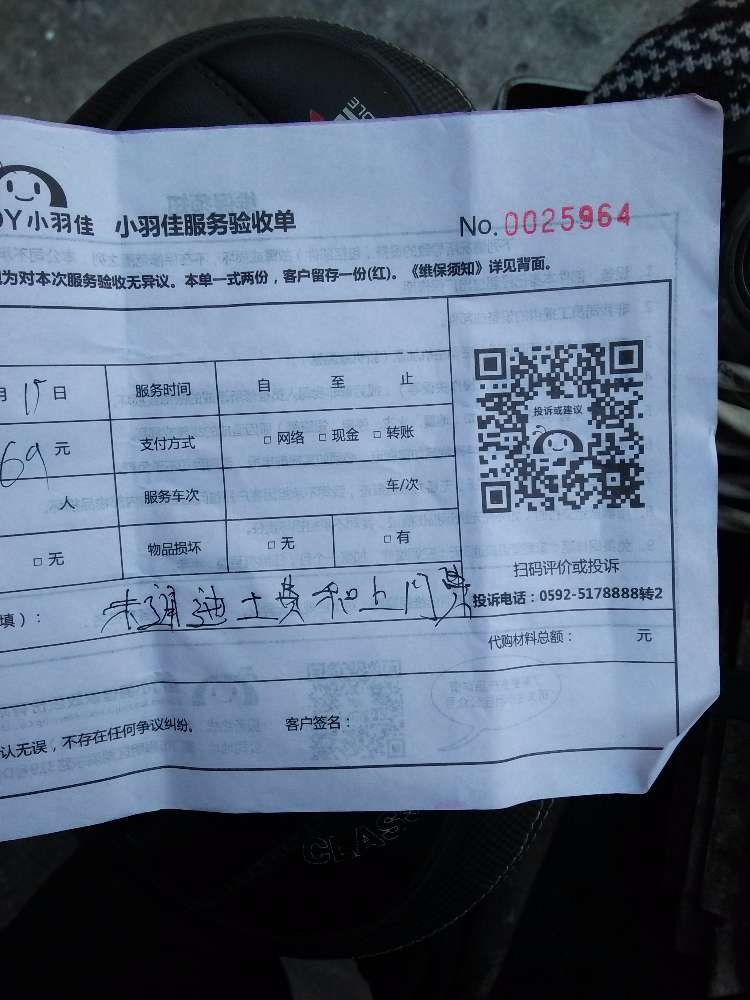 DY小羽佳 小羽佳服务验收单 No.0025964
为对本次服务验收无异议。本单一式两份，客户留存一份(红)。《维保须知》详见背面。
月 15 日 服务时间 自 至 止
69 元 支付方式 □ 网络 □ 现金 □ 转账
投诉或建议
人 服务车次 车/次
□ 无 物品损坏 □ 无 □ 有
扫码评价或投诉
填）： 未通 土费和上门费
投诉电话：0592-5178888转2
代购材料总额： 元
认无误，不存在任何争议纠纷。 客户签名：
CLASS